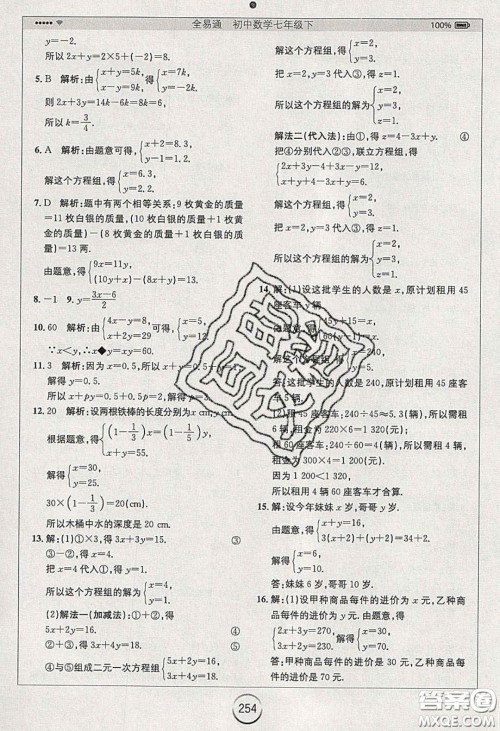 全易通 初中数学七年级下
100%
y=-2.
所以2x+2y=2×5+(-2)=8.
5. B 解析:由{x+y=5k, x-y=9k, 得{x=7k, y=-2k.
则2x+3y=14k-6k=8k=6,
所以k=3/4.
6. A 解析:由题意可得,{x+2=8.3, y-1=1.2.
解这个方程组,得{x=6.3, y=2.2.
7. D 解析:题中有两个相等关系:9枚黄金的质量
=11枚白银的质量,(10枚白银的质量+1枚黄
金的质量)-(8枚黄金的质量+1枚白银的质
量)=13两.
由题意,得{9x=11y, (10y+x)-(8x+y)=13.
8. -1 9. y=(3x-6)/2
10. 60 解析:由{4x-y=8, x+2y=29 得{x=5, y=12.
∵x<y,∴x◆y=xy=60.
11. 3 解析:因为x=0.5,所以x+y=0.5+y=1.
解得y=0.5,
所以4x+2y=4×0.5+2×0.5=3.
12. 20 解析:设两根铁棒的长度分别为x cm,y cm.
根据题意,得{(1-1/3)x=(1-1/5)y, x+y=55.
解得{x=30, y=25.
30×(1-1/3)=20(cm).
所以木桶中水的深度是20 cm.
13. 解:(1)①×3,得3x+3y=15. ③
③-②,得x=4.
把x=4代入①,得y=1.
所以这个方程组的解为{x=4, y=1.
(2)解法一(加减法):①+②,得
5x+2y=16. ④
②+③,得3x+4y=18. ⑤
④与⑤组成二元一次方程组{5x+2y=16, 3x+4y=18.
解这个方程组,得{x=2, y=3.
把x=2,y=3代入③,得z=1.
所以这个方程组的解为{x=2, y=3, z=1.
解法二(代入法):由①,得z=4-3x+y. ④
把④分别代入②③,联立方程组,得
解这个方程组,得{x=2, y=3.
把x=2,y=3代入④,得z=1.
所以这个方程组的解为{x=2, y=3, z=1.
14. 解:(1)设这批学生的人数是x,原计划租用45
座客车y辆.
由题意,得{45y+15=x,
解得{x=240, y=5.
答:这批学生的人数是240,原计划租用45座客
车5辆.
(2)租45座客车:240÷45≈5.3(辆),所以需租
6辆,租金为220×6=1 320(元);
租60座客车:240÷60=4(辆),所以需租4辆,
租金为300×4=1 200(元).
因为1 200<1 320,
所以租用4辆60座客车才合算.
15. 解:设今年妹妹x岁,哥哥y岁.
由题意,得{x+y=16, 3(x+2)+(y+2)=34+2.
解得{x=6, y=10.
答:妹妹6岁,哥哥10岁.
16. 解:(1)设甲种商品每件的进价为x元,乙种商
品每件的进价为y元.由题意,得
解得{x=30, y=70.
答:甲种商品每件的进价是30元,乙种商品每
件的进价是70元.
254
答案圈
MXQE.COM